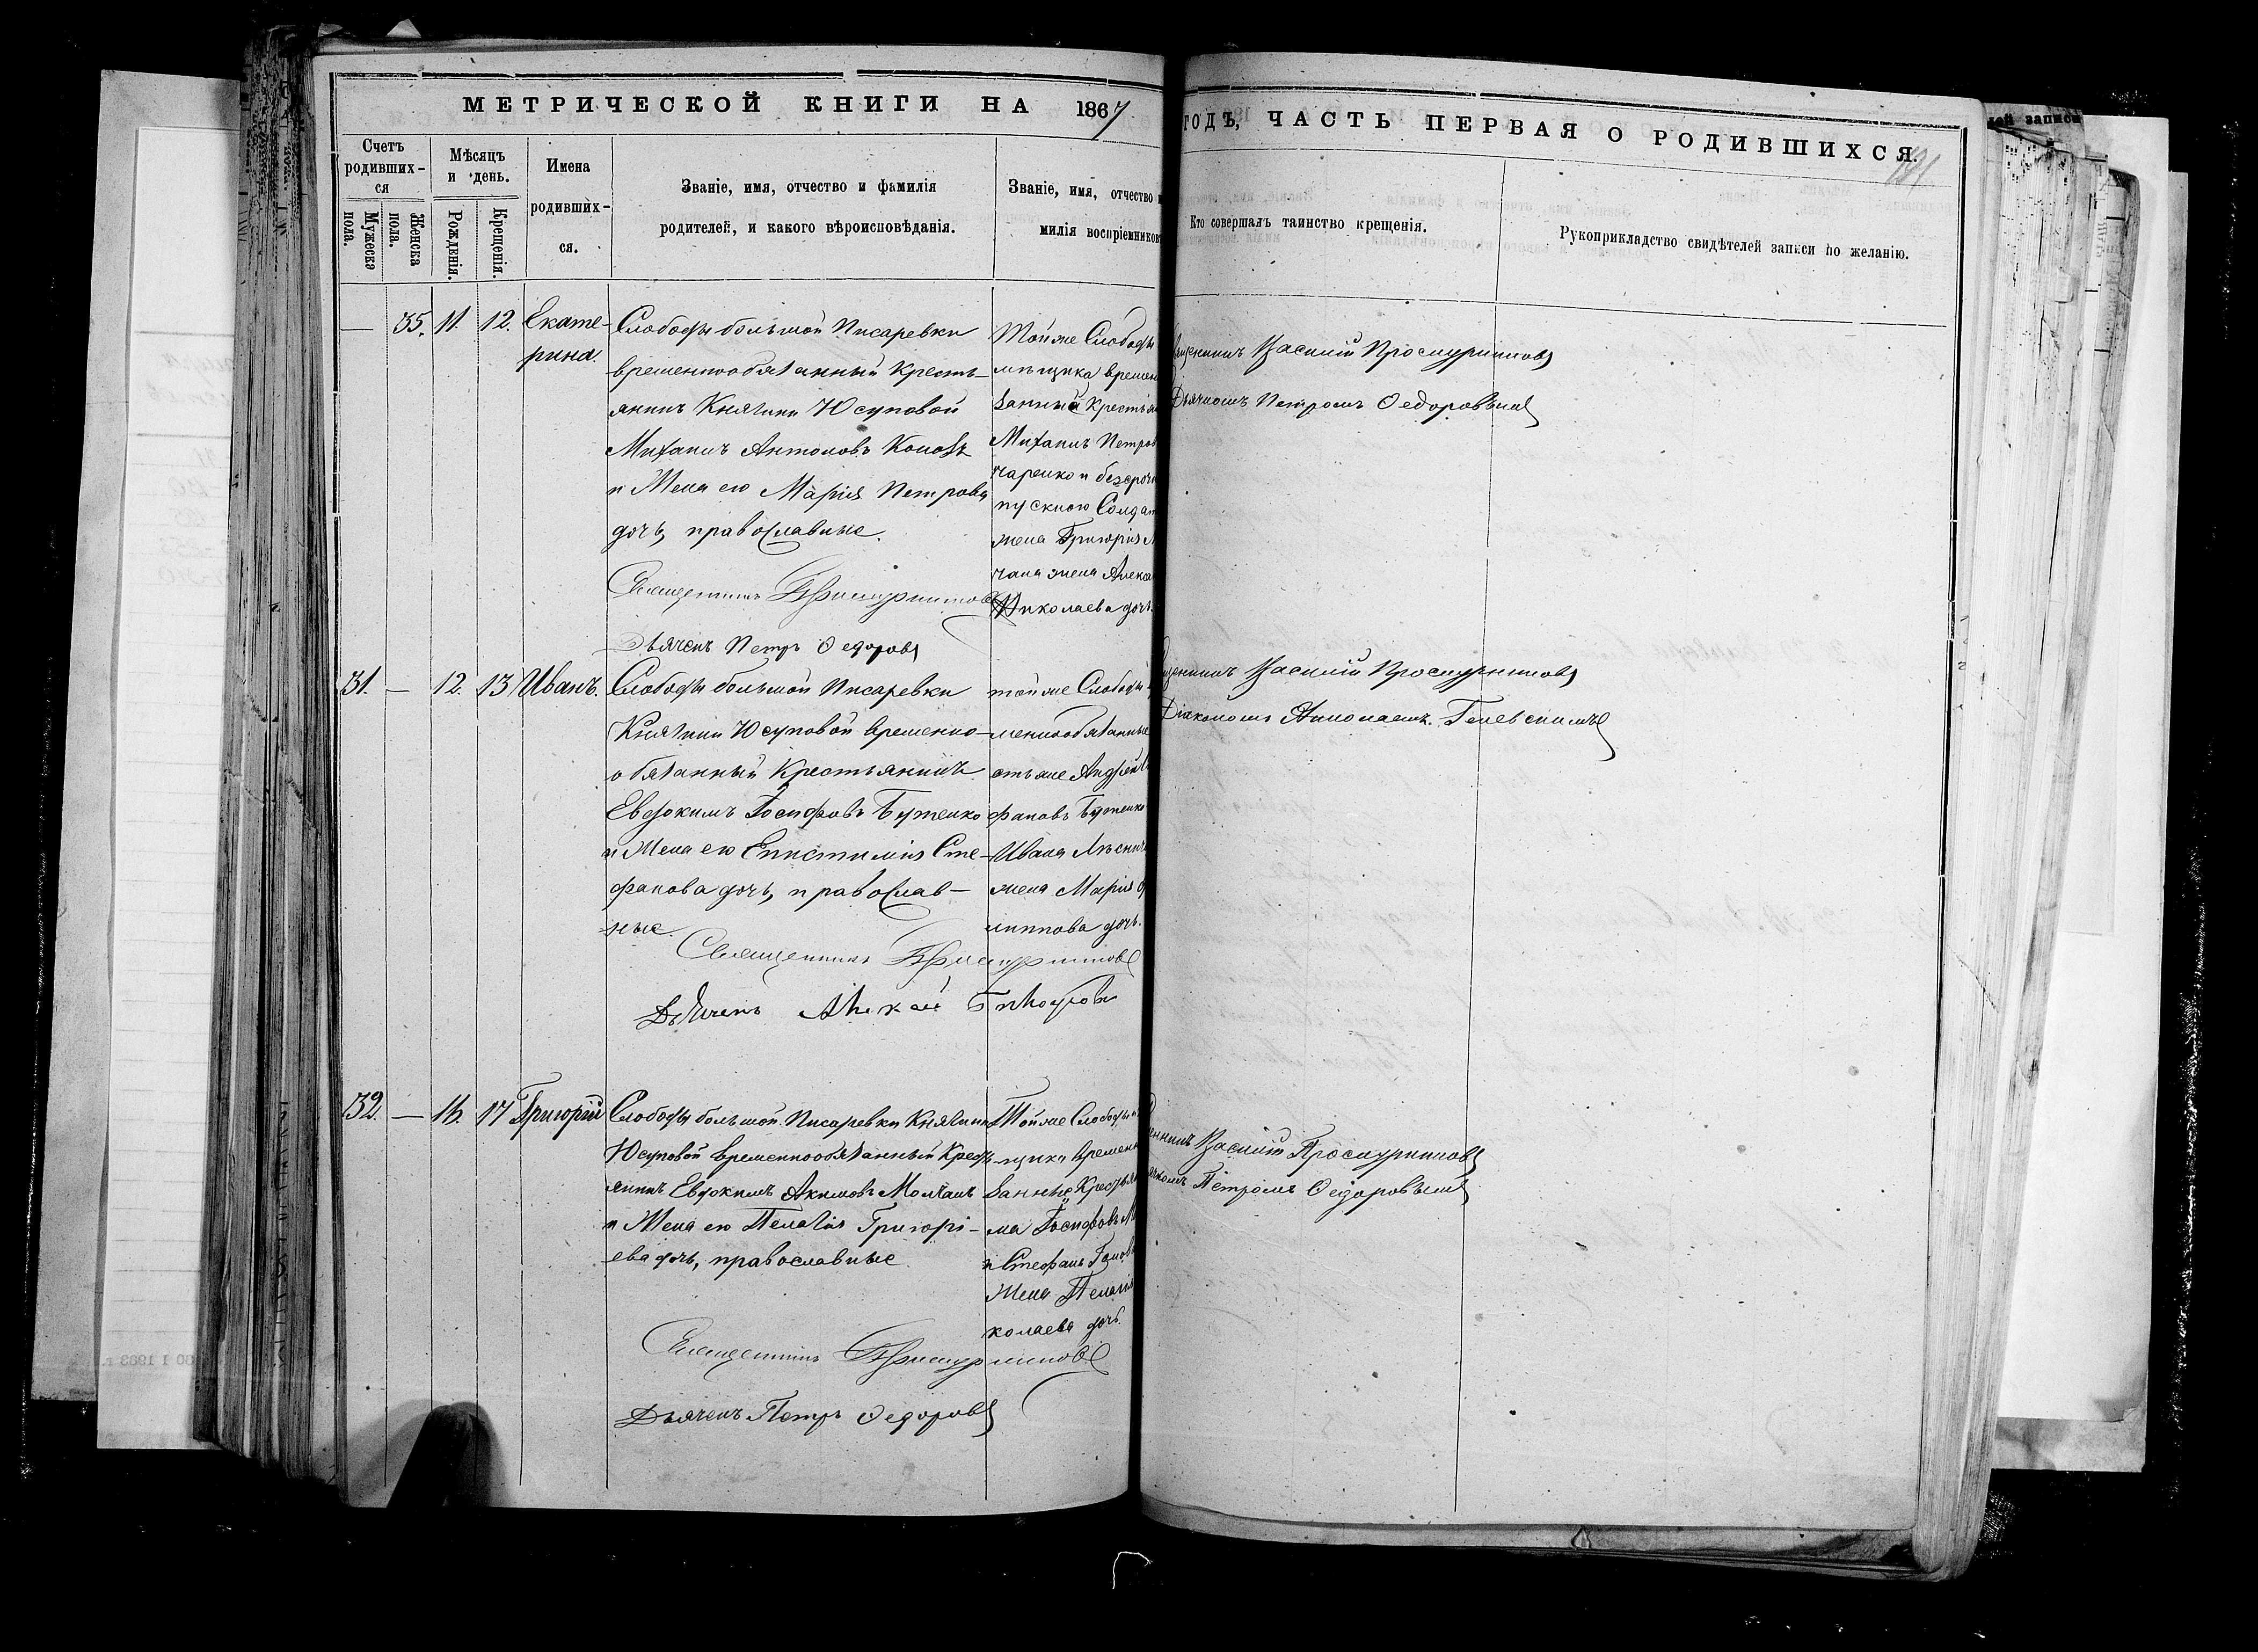 МЕТРИЧЕСКОЙ КНИГИ НА 1867
ГОДЪ, ЧАСТЬ ПЕРВАЯ О РОДИВШИХСЯ.
Счетъ родивших-ся
Мужеска пола.
Женска пола.
Мѣсяцъ и день.
Рожденія.
Крещенія.
Имена родивших-ся.
Званіе, имя, отчество и фамилія
родителей, и какого вѣроисповѣданія.
Званіе, имя, отчество
милія воспріемниковъ
Кто совершалъ таинство крещенія.
Рукоприкладство свидѣтелей записи по желанію.
— 35. 11. 12. Екате-
рина.
Слободы большой Писаревки
временнообязанный Кресть-
янинъ Княгини Юсуповой
Михаилъ Антоновъ
и Жена его Марія Петрова
дочь, православные.
Священникъ
Дьячекъ Петръ Ѳедоровъ
Тойже Слободы
мѣщика времен
занный Крестья
Михаилъ Петров
чаренко и безсроч
пускного Солдат
жена Григорія
чана жена Алекса
Николаева дочь.
Василій Проскурниковъ
Дьячкомъ Петромъ Ѳедоровымъ
31. — 12. 13 Иванъ.
Слободы большой Писаревки
Княгини Юсуповой временно-
обязанный Крестьянинъ
Евдокимъ Іосифовъ Бутенко
и Жена его Епистимія Сте-
фанова дочь, православ-
ные.
Священникъ
Дьячекъ
тойже Слободы
меннообязанные
стьяне Андрей
фановъ Бутенко
Ивана
жена Марія
липпова дочь.
Василій Проскурниковъ
Діакономъ Николаемъ
32. — 16. 17 Григорій
Слободы большой Писаревки Княгини
Юсуповой временнообязанный Кресть
янинъ Евдокимъ Акимовъ Молчанъ
и Жена его Пелагія Григорі-
ева дочь, православные
Священникъ
Дьячекъ Петръ Ѳедоровъ
Тойже Слободы
щики времен
занные Крестья
ма Іосифовъ
и Стефана
Жена Пелагія
колаева дочь.
Василій Проскурниковъ
Петромъ Ѳедоровымъ